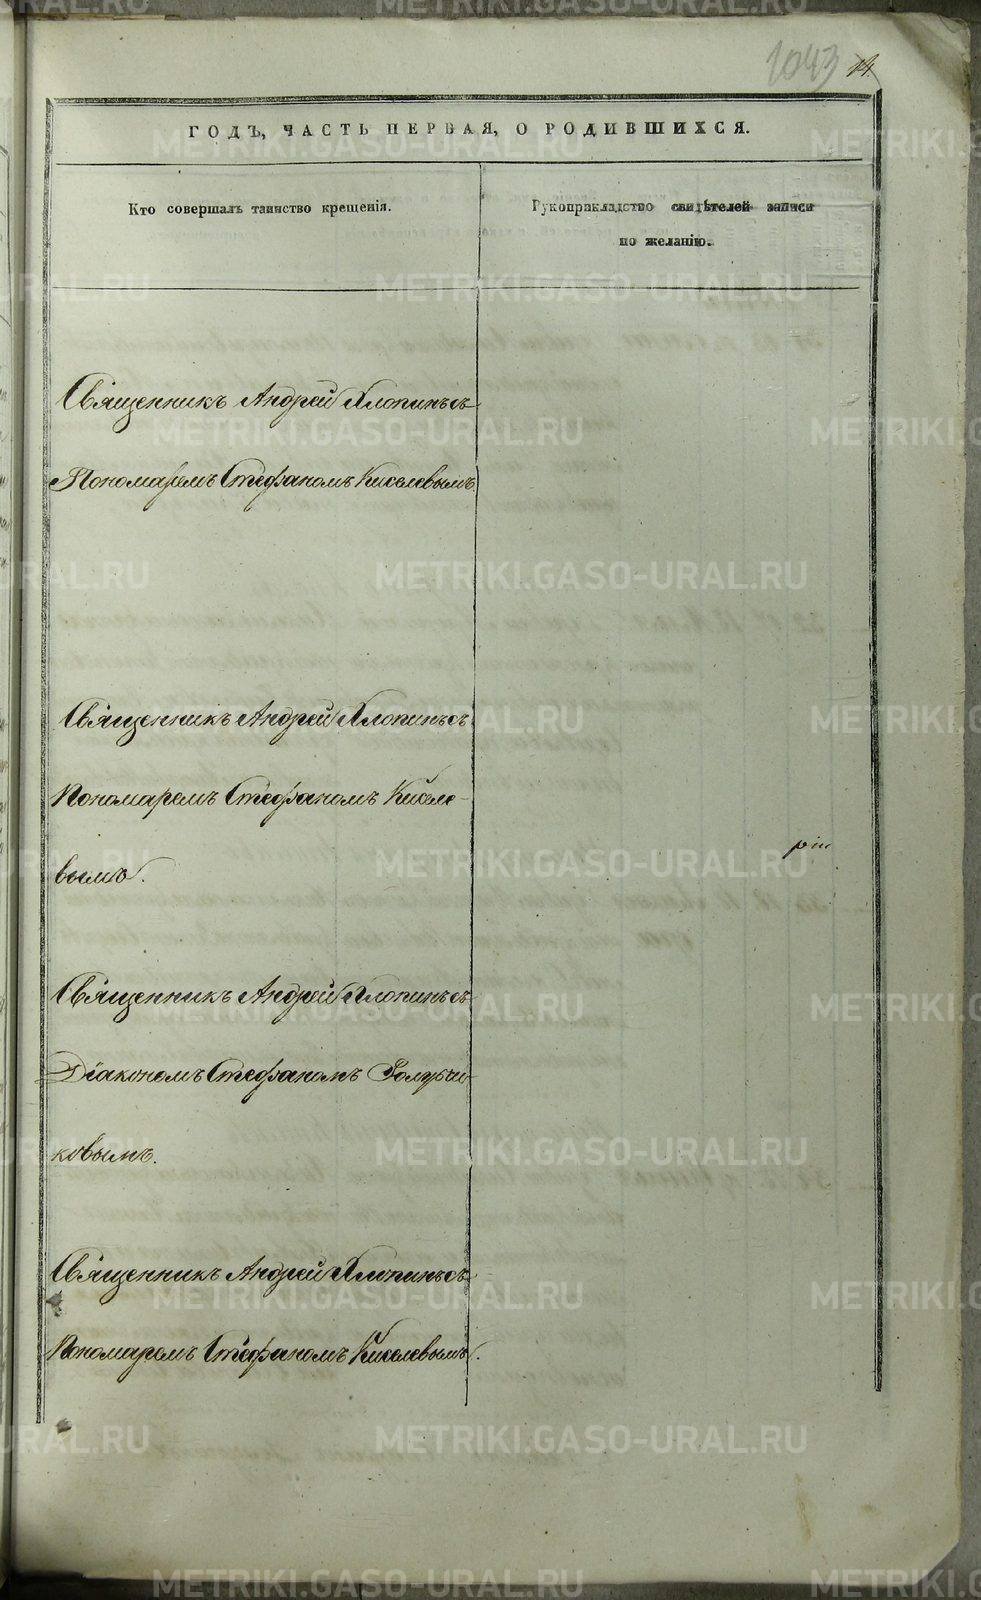 1043 14.
ГОДЪ, ЧАСТЬ ПЕРВАЯ, О РОДИВШИХСЯ.
Кто совершалъ таинство крещенія.
Рукоприкладство свидѣтелей записи
по желанію.
Священникъ Андрей Хлопинъ съ
Пономаремъ Стефаномъ Киселевымъ.
Священникъ Андрей Хлопинъ съ
Пономаремъ Стефаномъ Кисле-
вымъ.
Священникъ Андрей Хлопинъ съ
Діакономъ Стефаномъ
ковымъ.
Священникъ Андрей Хлопинъ съ
Пономаремъ Стефаномъ Киселевымъ.
METRIKI.GASO-URAL.RU